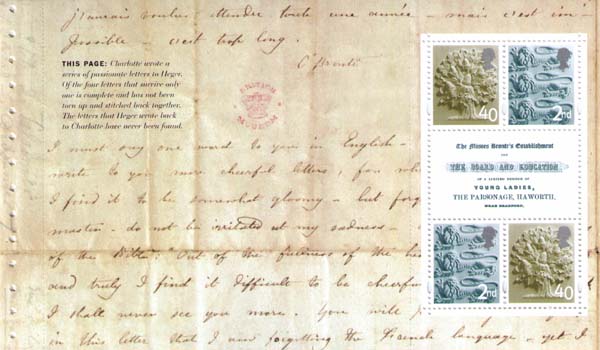 français voulu attendre toute une année – mais c'est im-
possible – c'est trop long.
C Brontë
THIS PAGE: Charlotte wrote a
series of passionate letters to Heger.
Of the four letters that survive only
one is complete and has not been
torn up and stitched back together.
The letters that Heger wrote back
to Charlotte have never been found.
BRITISH
MUSEUM
I must say one word to you in English –
write to you more cheerful letters, for
I find it to be somewhat gloomy – but
master – do not be irritated at my sadness –
of the Bible: "Out of the fulness of the
and truly I find it difficult to be cheerful
I shall never see you more. You will
in this letter that I am forgetting the French language – yet I
40
2nd
The Misses Brontë's Establishment
FOR
THE BOARD AND EDUCATION
OF A LIMITED NUMBER OF
YOUNG LADIES,
THE PARSONAGE, HAWORTH,
NEAR BRADFORD.
2nd
40